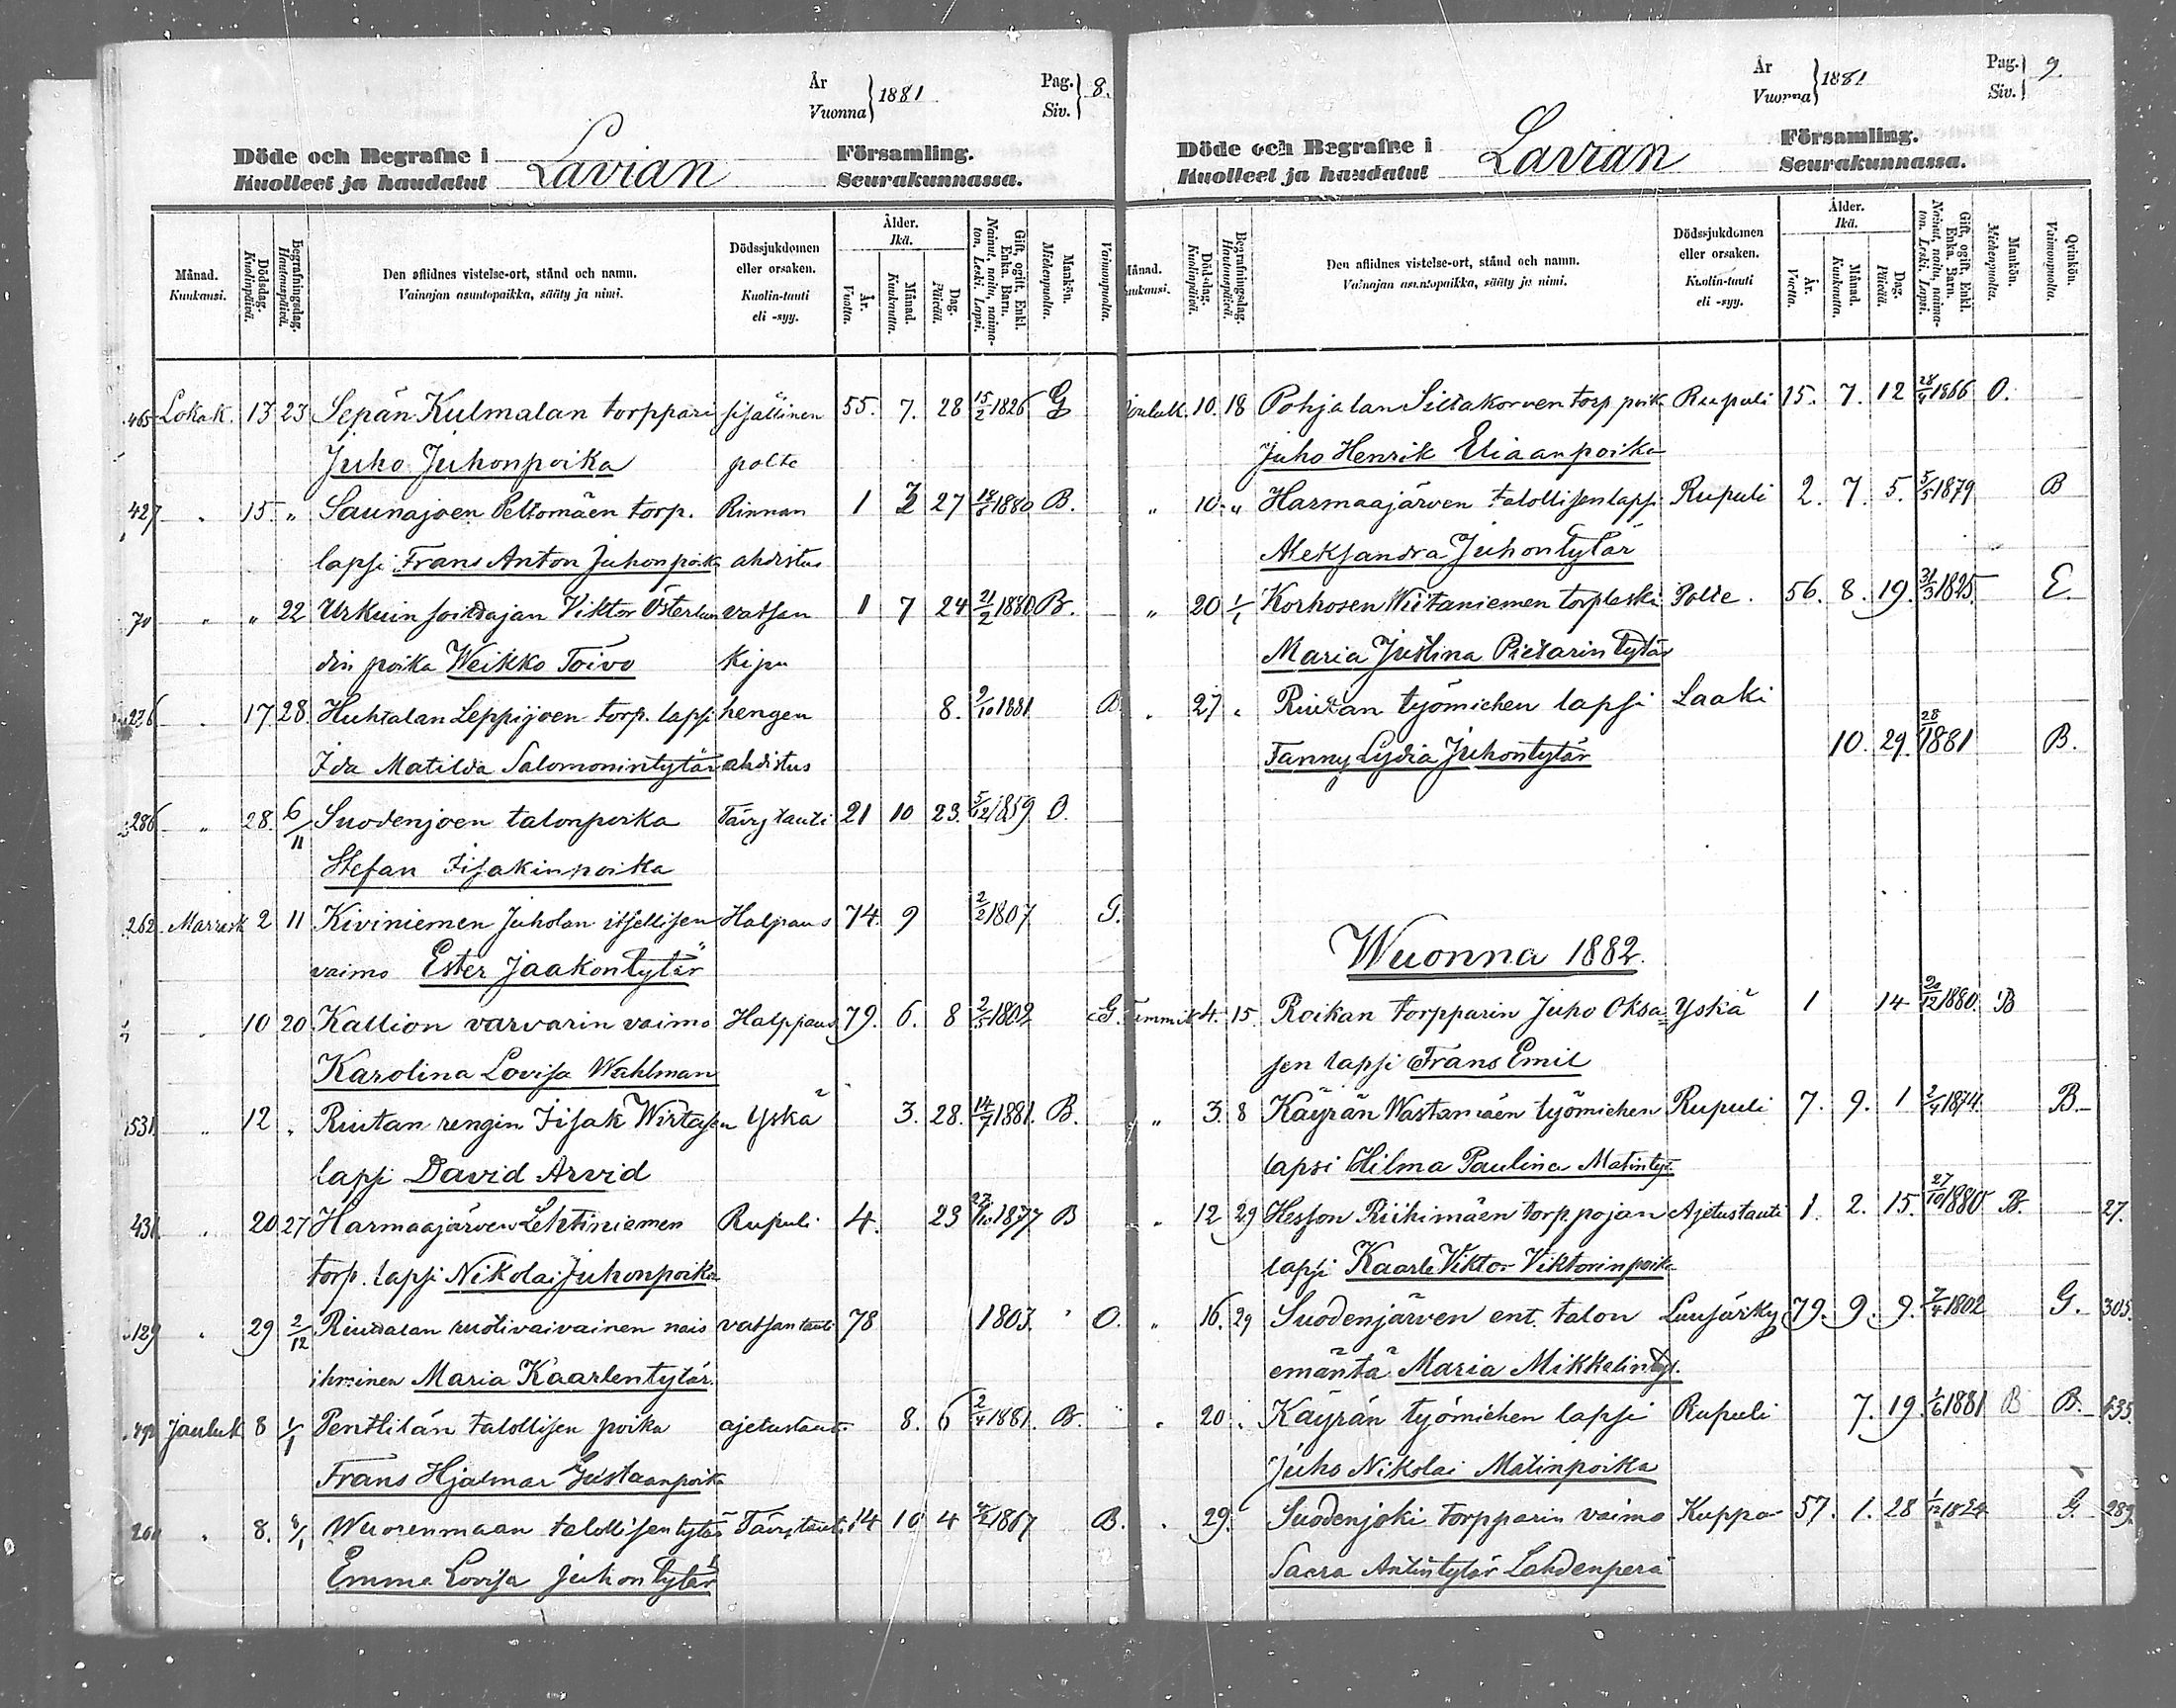 År
Vuonna 1881
Pag.
Siv. 8.
Döde och Begrafne i
Kuolleet ja haudatut
Lavian
Församling.
Seurakunnassa.
Månad.
Kuukausi.
Dödsdag.
Kuolinpäivä.
Begrafningsdag.
Hautauspäivä.
Den aflidnes vistelse-ort, stånd och namn.
Vainajan asuntopaikka, sääty ja nimi.
Dödssjukdomen
eller orsaken.
Kuolin-tauti
eli -syy.
Ålder.
Ikä.
År.
Vuotta.
Månad.
Kuukautta.
Dag.
Päivää.
Gift, ogift. Enkl.
Enka. Barn.
Nainut, naitu, naima-
ton. Leski. Lapsi.
Mankön.
Miehenpuolta.
Vaimonpuolta.
465 Lokak. 13 23 Sepän Kulmalan torppari sisällinen 55. 7. 28 15/2 1826 G
Juho Juhonpoika polte
427 " 15. " Saunajoen Peltomäen torp. Rinnan 1 3 27 18/6 1880 B.
lapsi Frans Anton Juhonpoika ahdistus
70 " " 22 Urkuin soittajan Viktor Österlun vatsan 1 7 24 21/2 1880 B.
din poika Weikko Toivo kipu
236 " 17. 28. Huhtalan Leppijoen torp. lapsi hengen 8. 9/10 1881 B
Ida Matilda Salomonintytär ahdistus
286 " 28. 6/11 Suodenjoen talonpoika Tävystauti 21 10 23. 5/12 1859 O.
Stefan Iisakinpoika
262 Marrask 2 11 Kiviniemen Juholan itsellisen Halpaus 74. 9 2/2 1807. G.
vaimo Ester Jaakontytär
" 10 20 Kallion varvarin vaimo Halppaus 79. 6. 8 2/5 1802 G.
Karolina Lovisa Wahlman
531 " 12 " Riutan rengin Iisak Wirtasen Yskä 3. 28. 14/7 1881. B.
lapsi David Arvid
431 " 20 27 Harmaajärven Lehtiniemen Rupuli 4. 23 27/10 1877 B
torp. lapsi Nikolai Juhonpoika
129 " 29 2/12 Riudalan ruotivaivainen nais vatsantauti 78 1803. O.
ihminen Maria Kaarlentytär
Jouluk 8 1/1 Penttilän talollisen poika ajetustauti 8. 6 2/4 1881. B.
Frans Hjalmar Justaanpoika
201 " 8. 8/1 Wuorenmaan talollisen tytär Tävystauti 14 10 4 4/2 1867 B.
Emma Lovisa Juhontytär
År
Vuonna 1881
Pag.
Siv. 9.
Döde och Begrafne i
Kuolleet ja haudatut
Lavian
Församling.
Seurakunnassa.
Månad.
Kuukausi.
Död-dag.
Kuolinpäivä.
Begrafningsdag.
Hautauspäivä.
Den aflidnes vistelse-ort, stånd och namn.
Vainajan asuntopaikka, sääty ja nimi.
Dödssjukdomen
eller orsaken.
Kuolin-tauti
eli -syy.
Ålder.
Ikä.
År.
Vuotta.
Månad.
Kuukautta.
Dag.
Päivää.
Gift, ogift. Enkl.
Enka. Barn.
Nainut, naitu, naima-
ton. Leski. Lapsi.
Mankön.
Miehenpuolta.
Qvinkön.
Vaimonpuolta.
Jouluk. 10. 18 Pohjalan Siltakorven torp. poik. Rupuli 15. 7. 12 28/4 1866 O.
Juho Henrik Eliaanpoika
" 10. " Harmaajärven talollisen lapsi Rupuli 2. 7. 5. 5/5 1879 B
Aleksandra Juhontytär
" 20 1/1 Korhosen Wiitaniemen torp leski Polte. 56. 8. 19. 31/3 1825 E.
Maria Justina Pietarintytär
" 27 " Riutan työmiehen lapsi Laaki
Fanny Lydia Juhontytär 10. 29. 28/1 1881 B.
Wuonna 1882.
Tammik 4. 15. Roikan torpparin Juho Oksa= Yskä 1 14 20/12 1880. B
sen lapsi Frans Emil
" 3. 8 Käyrän Wastamäen työmiehen Rupuli 7. 9. 1 2/4 1874. B
lapsi Hilma Paulina Matintyt.
" 12 29 Hesson Riihimäen torp. pojan Ajetustauti 1. 2. 15. 27/10 1880 B. 27.
lapsi Kaarle Viktor Viktorinpoika
" 16. 29 Suodenjärven ent. talon Luusärky 79. 9. 9. 7/4 1802 G. 305.
emäntä Maria Mikkelintyt.
" 20 " Käyrän työmiehen lapsi Rupuli 7. 19. 1/6 1881 B B. 535.
Juho Nikolai Matinpoika
" 29. Suodenjoki torpparin vaimo Kuppa 57. 1. 28 1/12 1824 G. 289.
Saara Antintytär Lahdenperä